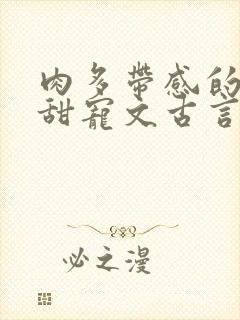 肉多帶感的
甜寵文古言
必之漫